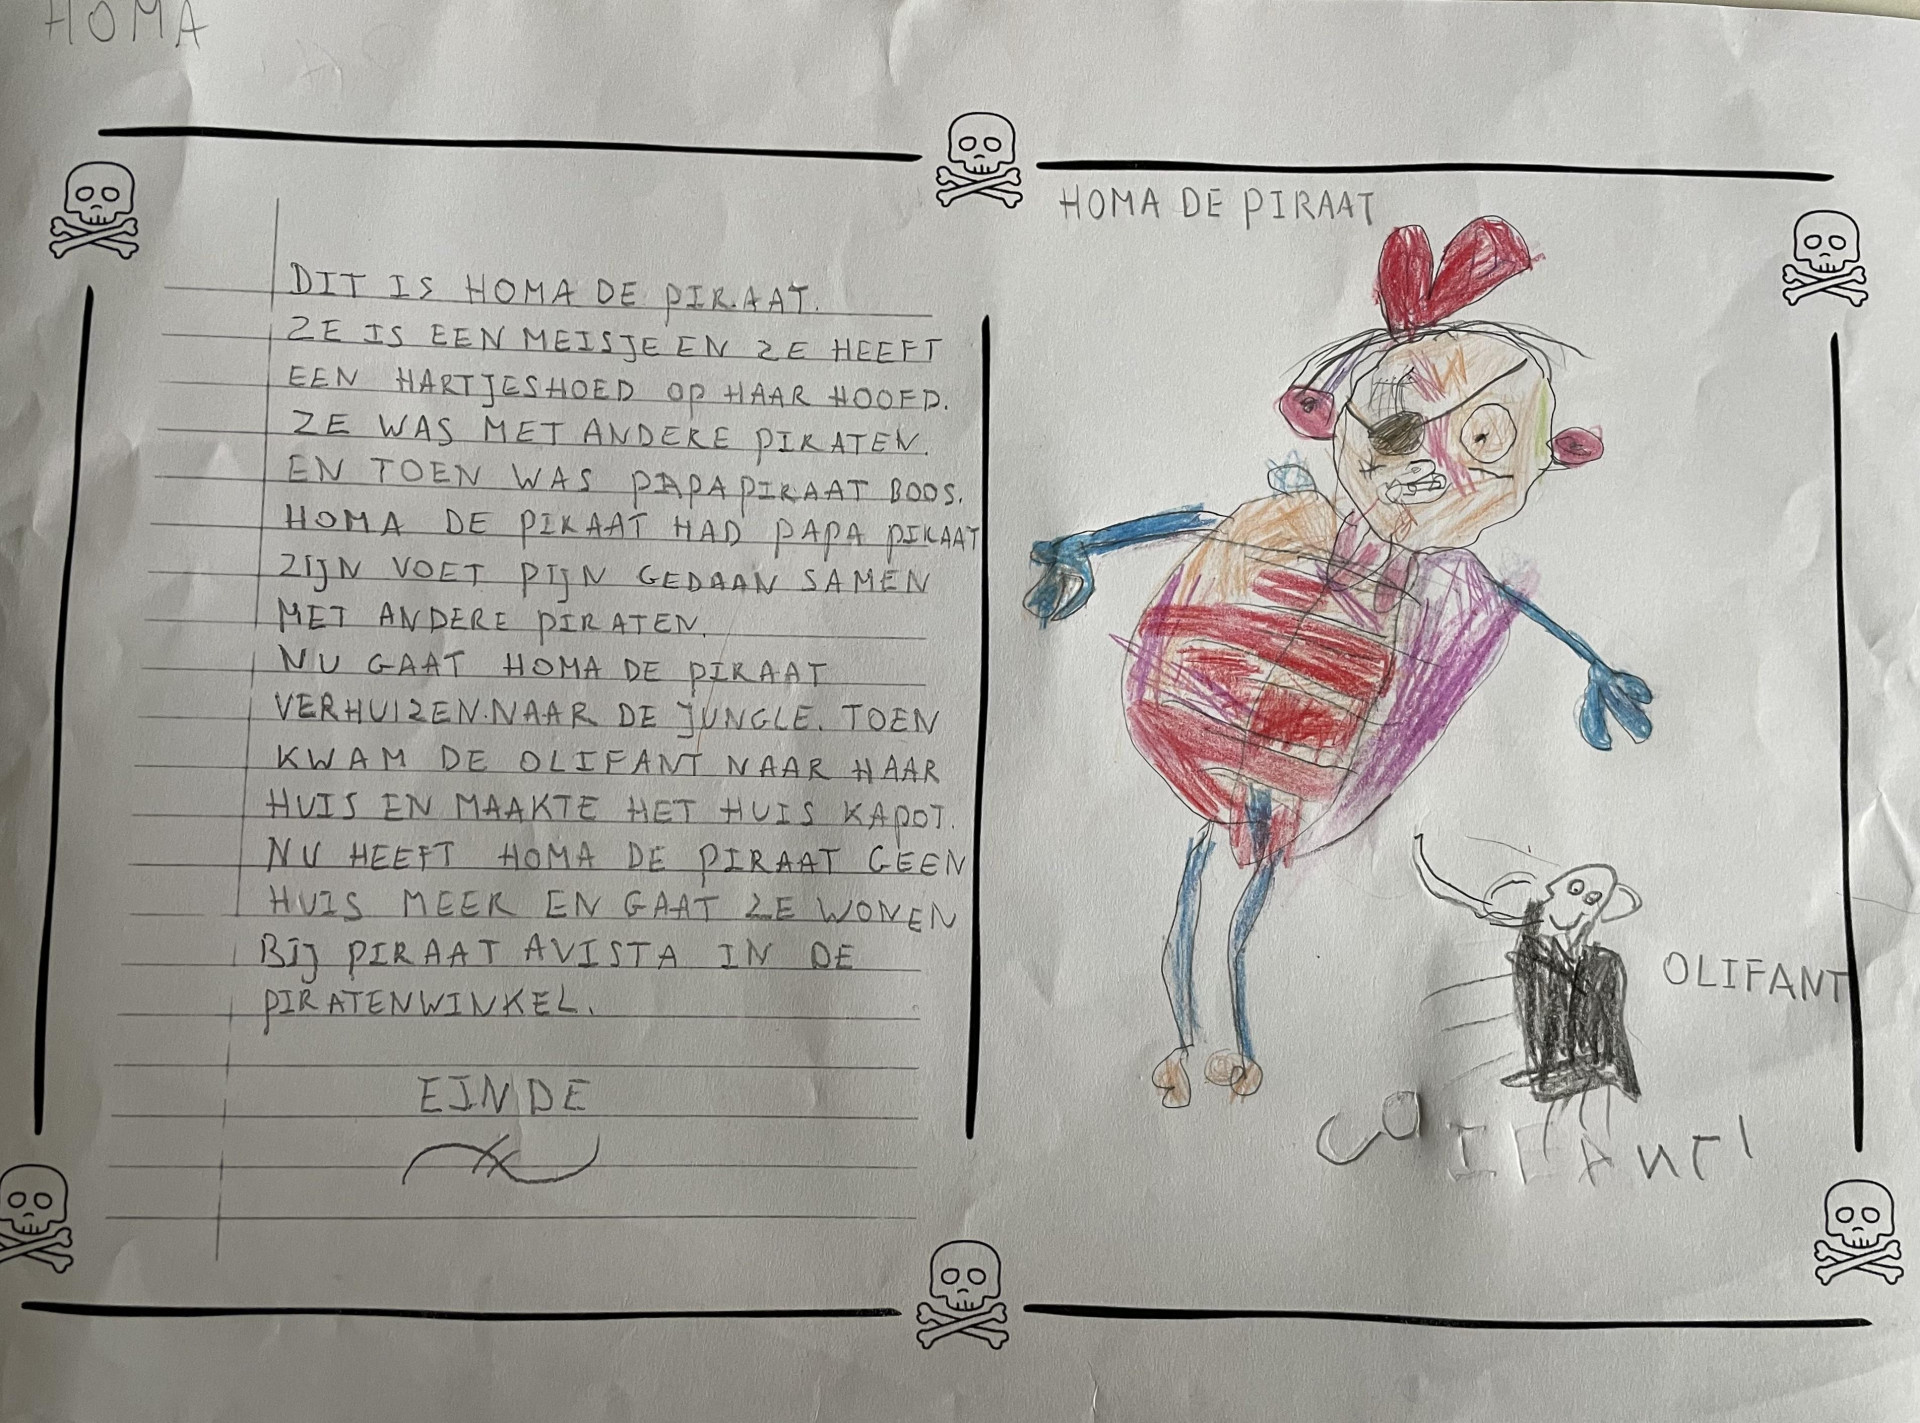 HOMA
DIT IS HOMA DE PIRAAT.
ZE IS EEN MEISJE EN ZE HEEFT
EEN HARTJESHOED OP HAAR HOOFD.
ZE WAS MET ANDERE PIRATEN.
EN TOEN WAS PAPA PIRAAT BOOS.
HOMA DE PIRAAT HAD PAPA PIRAAT
ZIJN VOET PIJN GEDAAN SAMEN
MET ANDERE PIRATEN.
NU GAAT HOMA DE PIRAAT
VERHUIZEN.NAAR DE JUNGLE. TOEN
KWAM DE OLIFANT NAAR HAAR
HUIS EN MAAKTE HET HUIS KAPOT.
NU HEEFT HOMA DE PIRAAT GEEN
HUIS MEER EN GAAT ZE WONEN
BIJ PIRAAT AVISTA IN DE
PIRATENWINKEL.
EINDE
HOMA DE PIRAAT
OLIFANT